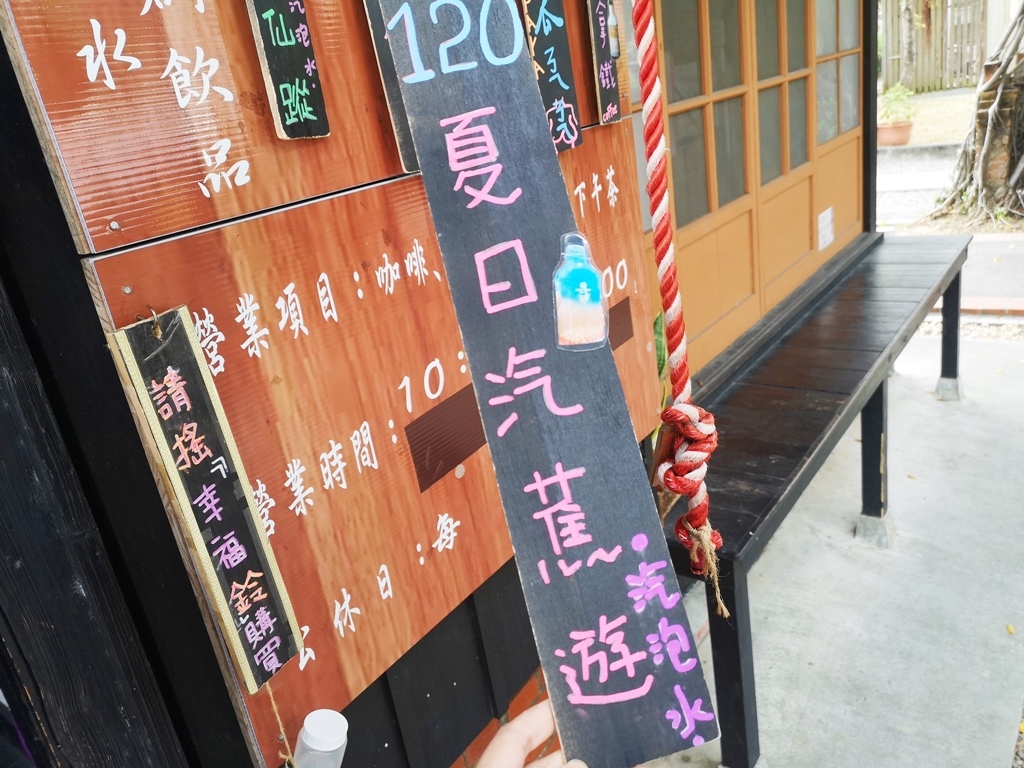 水
飲品
仙蹤
汽泡水
120
夏日汽蕉~遊
汽泡水
下午茶
營業項目:咖啡、
00
營業時間:10:
休日:每
請搖"幸福鈴"購買
鐵
coffee